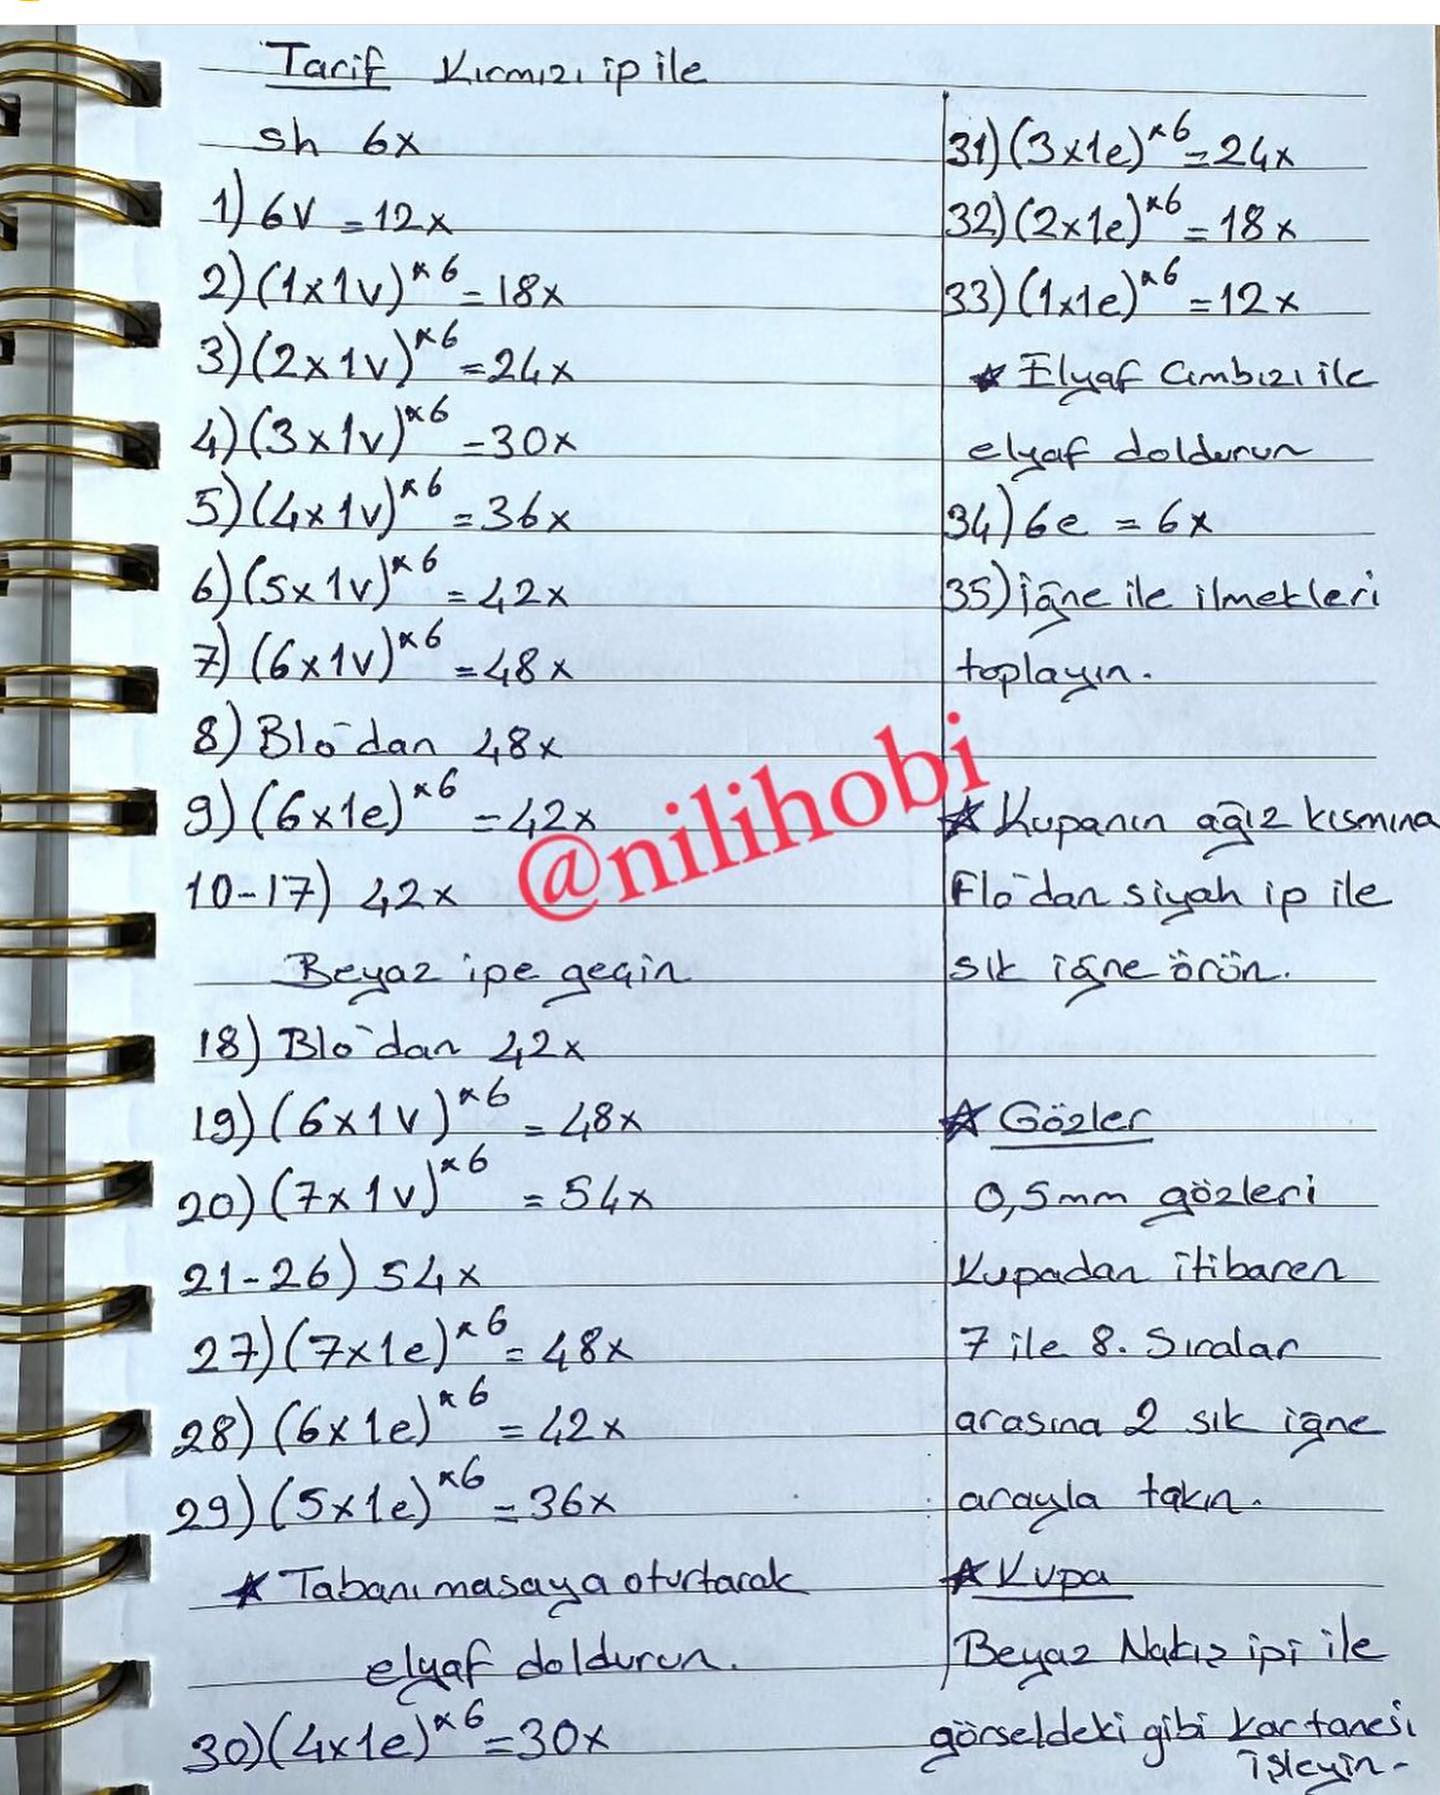 Tarif Kırmızı ip ile
sh 6x
1) 6V = 12x
2) (1x1v)^x6 = 18x
3) (2x1v)^x6 = 24x
4) (3x1v)^x6 = 30x
5) (4x1v)^x6 = 36x
6) (5x1v)^x6 = 42x
7) (6x1v)^x6 = 48x
8) Blo'dan 48x
9) (6x1e)^x6 = 42x
10-17) 42x
Beyaz ipe geçin
18) Blo'dan 42x
19) (6x1v)^x6 = 48x
20) (7x1v)^x6 = 54x
21-26) 54x
27) (7x1e)^x6 = 48x
28) (6x1e)^x6 = 42x
29) (5x1e)^x6 = 36x
★ Tabanı masaya oturtarak
elyaf doldurun.
30) (4x1e)^x6 = 30x
31) (3x1e)^x6 = 24x
32) (2x1e)^x6 = 18x
33) (1x1e)^x6 = 12x
★ Elyaf Cımbızı ile
elyaf doldurun
34) 6e = 6x
35) iğne ile ilmekleri
toplayın.
★ Kupanın ağız kısmına
Flo'dan siyah ip ile
sık iğne örün.
★ Gözler
0,5mm gözleri
Kupadan itibaren
7 ile 8. Sıralar
arasına 2 sık iğne
arayla takın.
★ Kupa
Beyaz Nakış ipi ile
görseldeki gibi kartanesi
işleyin.
@nilihobi